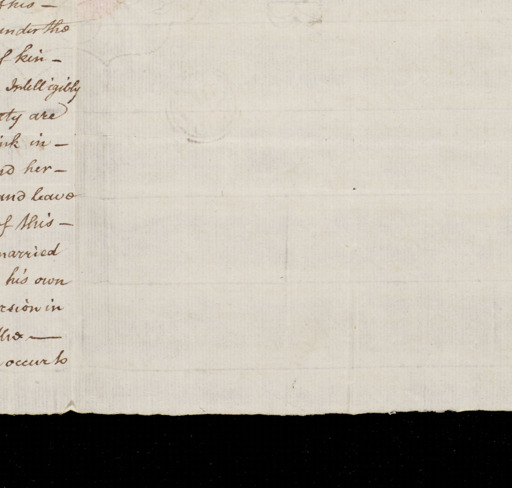 this —
under the
of kin —
Intelligibly
are
in —
her —
and leave
of this —
married
his own
in
the —
occur to